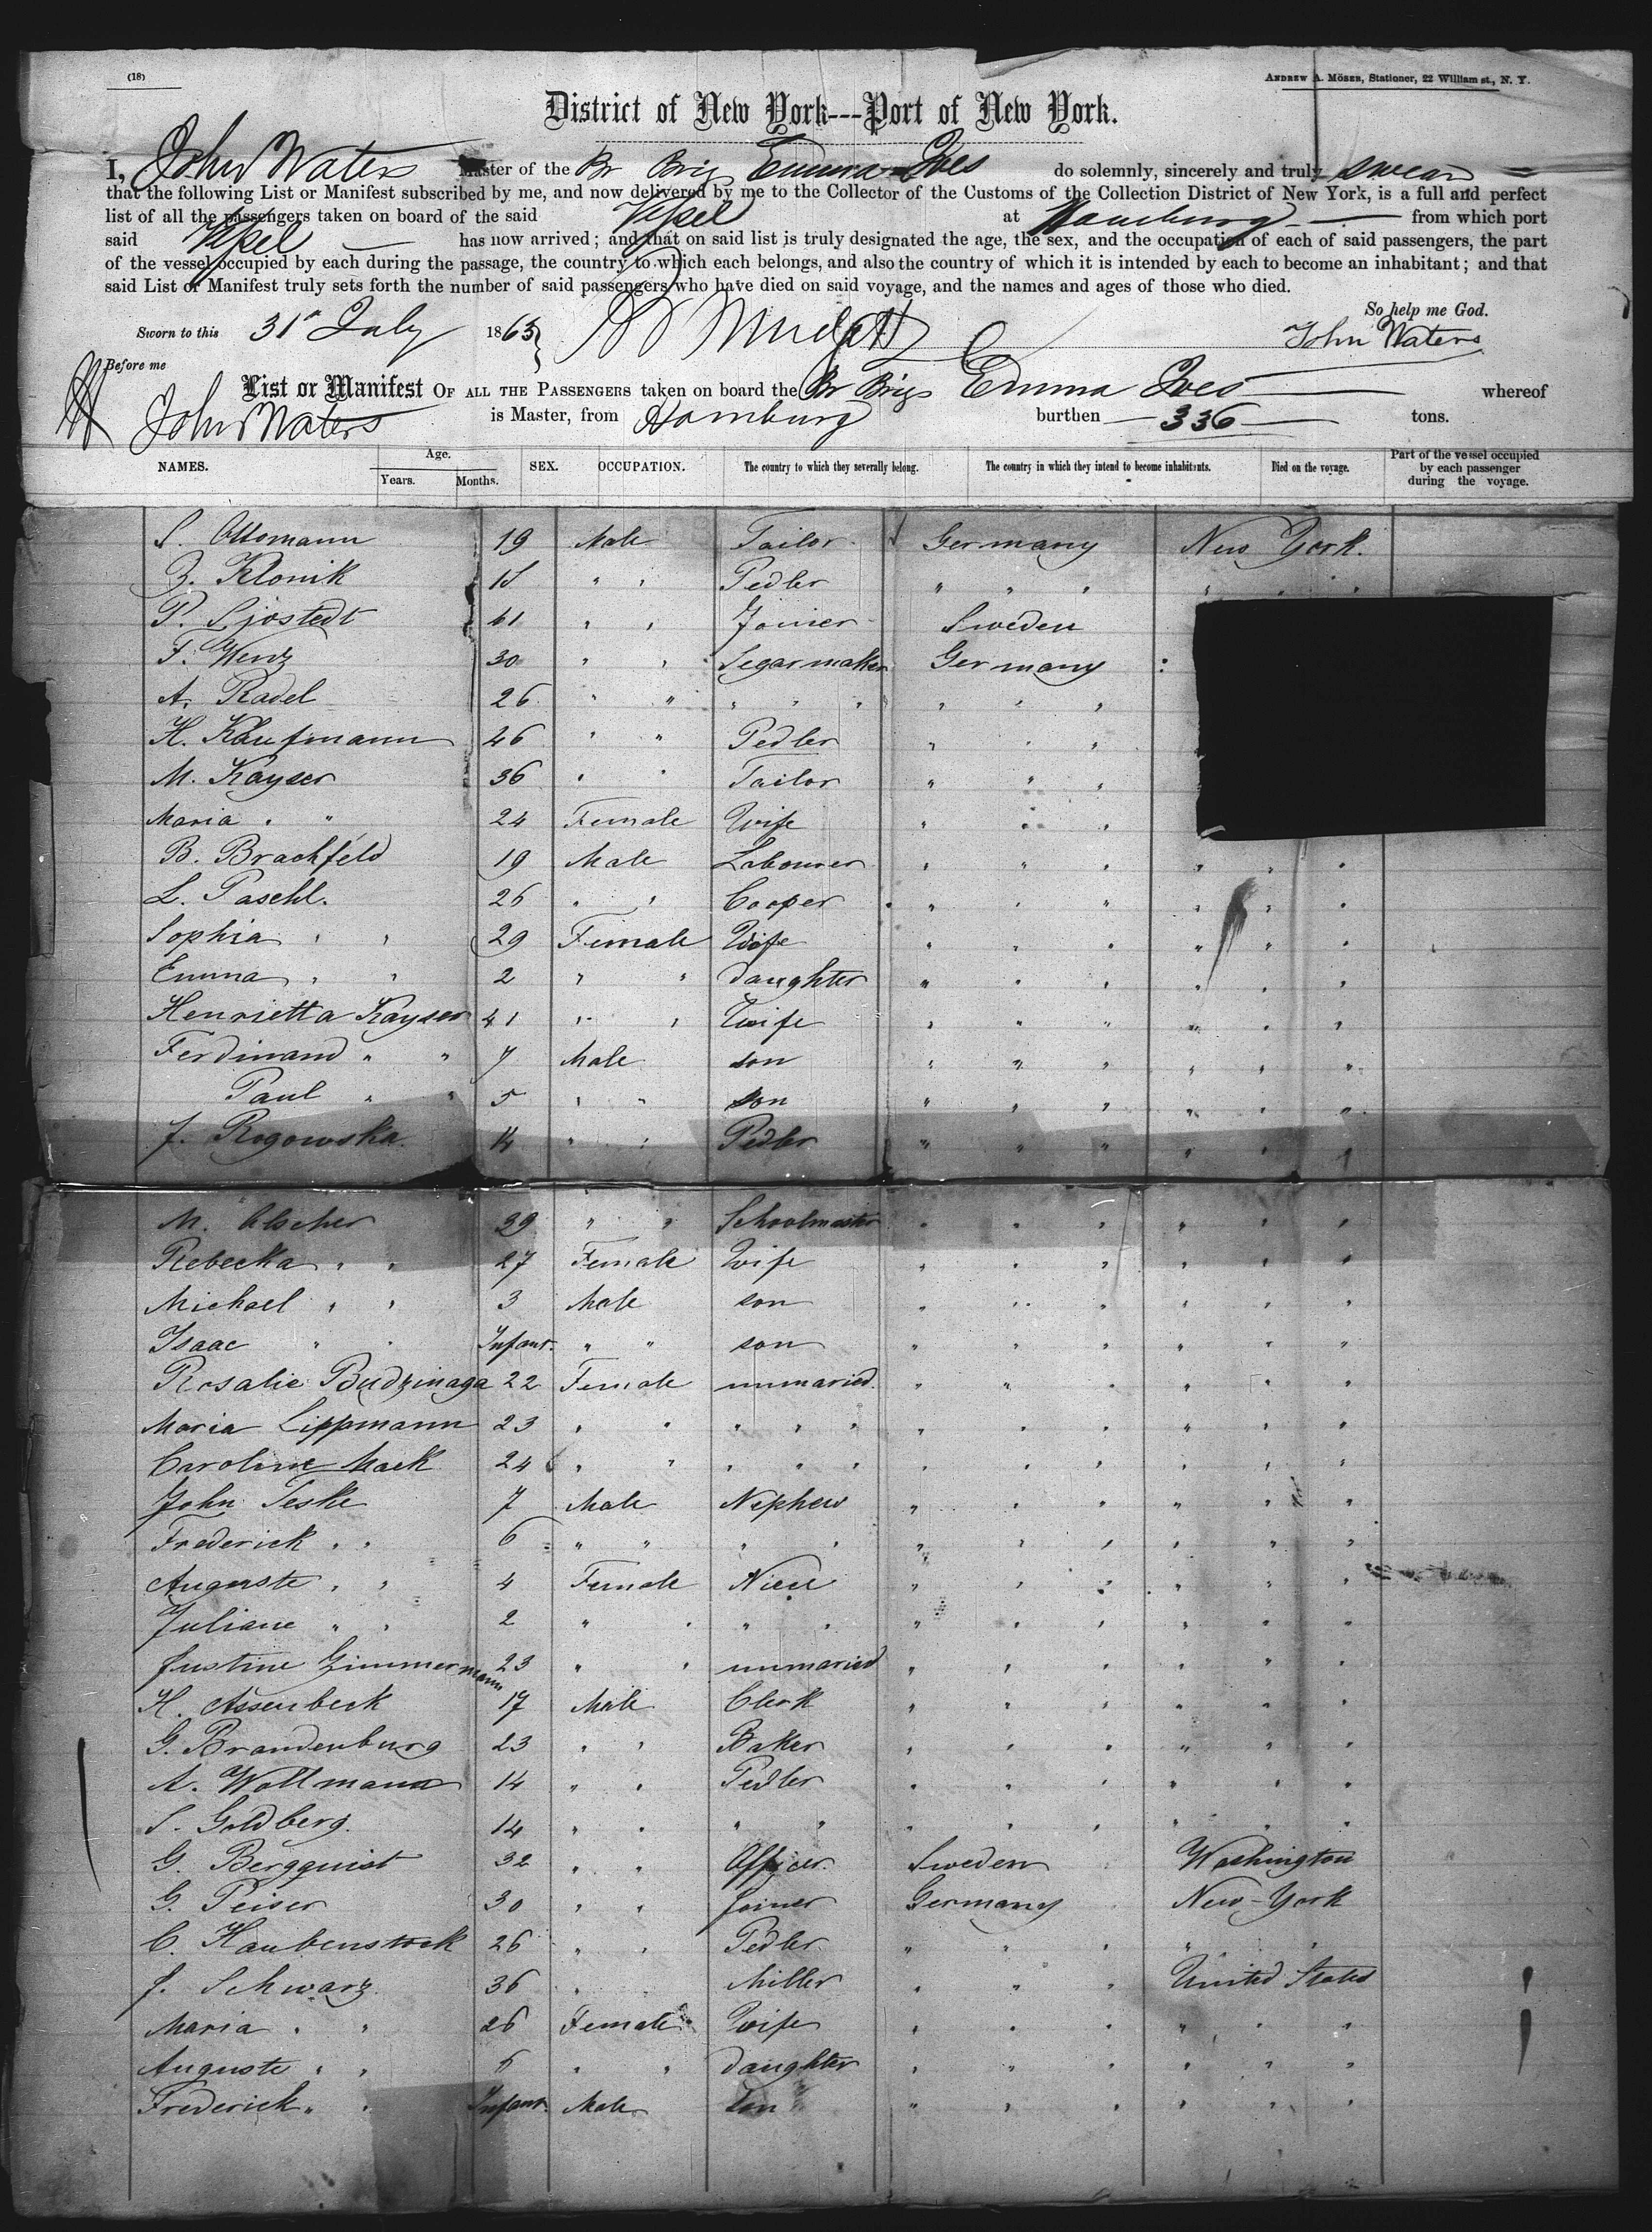 (18)
ANDREW A. MÖSER, Stationer, 22 William st., N. Y.
District of New York---Port of New York.
I, John Waters Master of the Br Brig Emma Ives do solemnly, sincerely and truly swear
that the following List or Manifest subscribed by me, and now delivered by me to the Collector of the Customs of the Collection District of New York, is a full and perfect
list of all the passengers taken on board of the said Vessel at Hamburg from which port
said Vessel has now arrived; and that on said list is truly designated the age, the sex, and the occupation of each of said passengers, the part
of the vessel occupied by each during the passage, the country to which each belongs, and also the country of which it is intended by each to become an inhabitant; and that
said List or Manifest truly sets forth the number of said passengers who have died on said voyage, and the names and ages of those who died.
So help me God.
Sworn to this 31st July 1863 John Waters
Before me
List or Manifest OF ALL THE PASSENGERS taken on board the Br Brig Emma Ives whereof
John Waters is Master, from Hamburg burthen 336 tons.
NAMES. Age. Years. Months. SEX. OCCUPATION. The country to which they severally belong. The country in which they intend to become inhabitants. Died on the voyage. Part of the vessel occupied by each passenger during the voyage.
S. Ottomann 19 Male Tailor Germany New York.
Z. Klonik " " Pedler " " " " " "
P. Sjostedt 41 " " Joiner Sweden
F. Wenz 30 " " Segarmaker Germany
A. Radel 26 " " " " " " " "
H. Kaufmann 46 " " Pedler " " "
M. Kayser 36 " " Tailor " " "
Maria " " 24 Female Wife " " "
B. Brachfeld 19 Male Labourer " " " " " "
L. Paschl. 26 " " Cooper " " " " " "
Sophia " " 29 Female Wife " " " " " "
Emma " " 2 " " daughter " " " " " "
Henrietta Kayser 41 " " Wife " " " " " "
Ferdinand " " 7 Male son " " " " " "
Paul " " 5 " " son " " " " " "
J. Rogowska. 14 " " Pedler " " " " " "
M. Alscher 29 " " Schoolmaster " " " " " "
Rebecka " " 27 Female Wife " " " " " "
Michael " " 3 Male son " " " " " "
Isaac " " Infant. " " son " " " " " "
Rosalie Budzinaga 22 Female unmaried. " " " " " "
Maria Lippmann 23 " " " " " " " " " " "
Caroline Mack 24 " " " " " " " " " " "
John Teske 7 Male Nephew " " " " " "
Frederick " " 6 " " " " " " " " " "
Auguste " " 4 Female Niece " " " " " "
Juliane " " 2 " " " " " " " " " "
Justine Zimmermann 23 " " unmaried " " " " " "
H. Assenbeck 17 Male Clerk " " " " " "
G. Brandenburg 23 " " Baker " " " " " "
A. Wollmann 14 " " Pedler " " " " " "
S. Goldberg. 14 " " " " " " " " " "
G. Bergquist 32 " " Officer. Sweden Washington
G. Peiser 30 " " Joiner Germany New-York
C. Haubenstock 26 " " Pedler " " " " " "
J. Schwarz 36 " Miller " " " United States
Maria " " 26 Female Wife " " " " " "
Auguste " " 6 " " daughter " " " " " "
Frederick " " Infant. Male Son " " " " " "